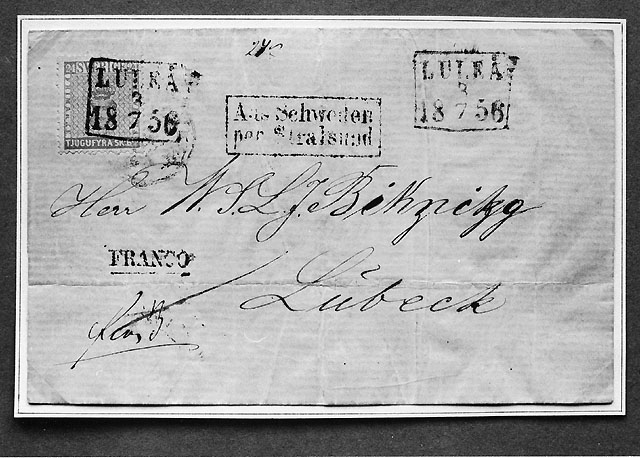 24
SVERIGE
TJUGUFYRA SK.
LULEÅ
3
18 7 56
Aus Schweden
per Stralsund
LULEÅ
3
18 7 56
Herr
FRANCO
Lübeck